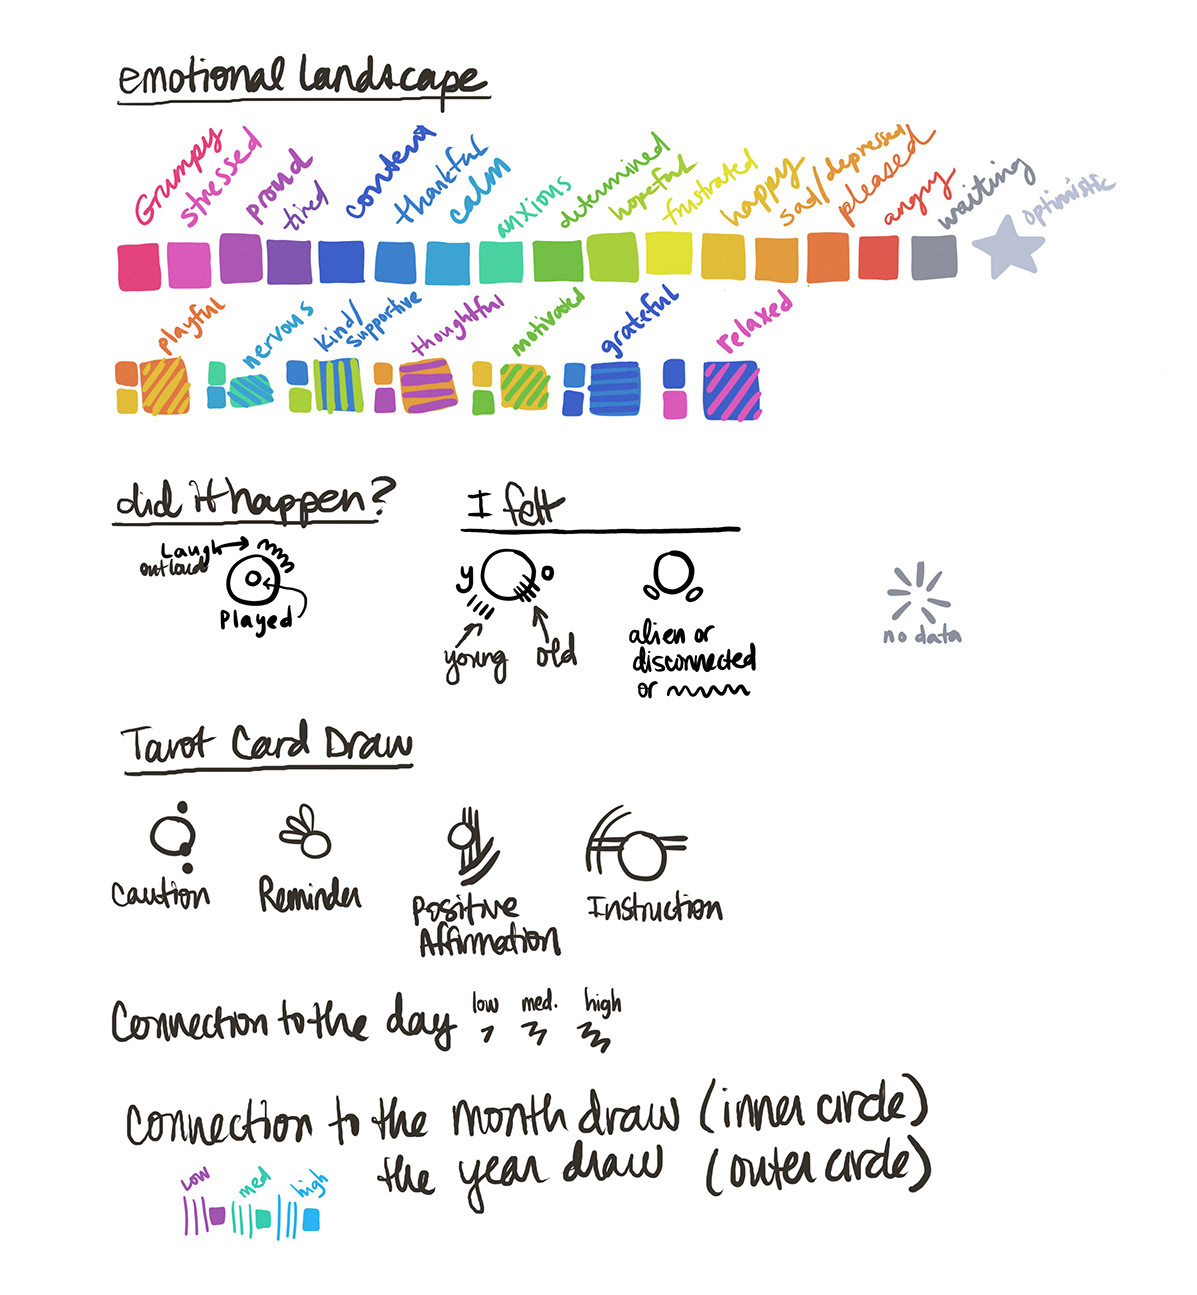 emotional landscape
Grumpy
stressed
proud
tired
content
thankful
calm
anxious
determined
hopeful
frustrated
happy
sad/depressed
pleased
angry
waiting
optimistic
playful
nervous
kind/
supportive
thoughtful
motivated
grateful
relaxed
did it happen?
Laugh
out loud
Played
I felt
y o
young old
alien or
disconnected
or
no data
Tarot Card Draw
Caution
Reminder
Positive
Affirmation
Instruction
Connection to the day low med. high
Connection to the month draw (inner circle)
the year draw (outer circle)
low med high